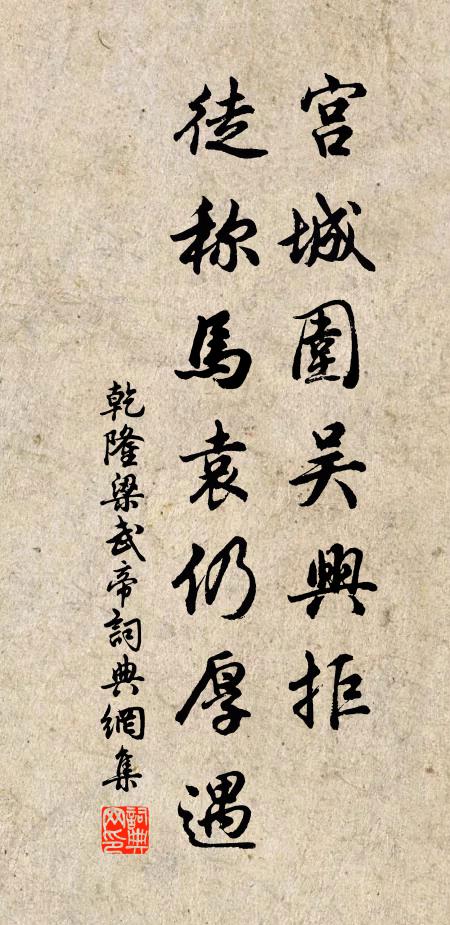 宫城圍吴興拒
徒称馬袁仍厚遇
乾隆梁武帝詞典網集
詞典網印